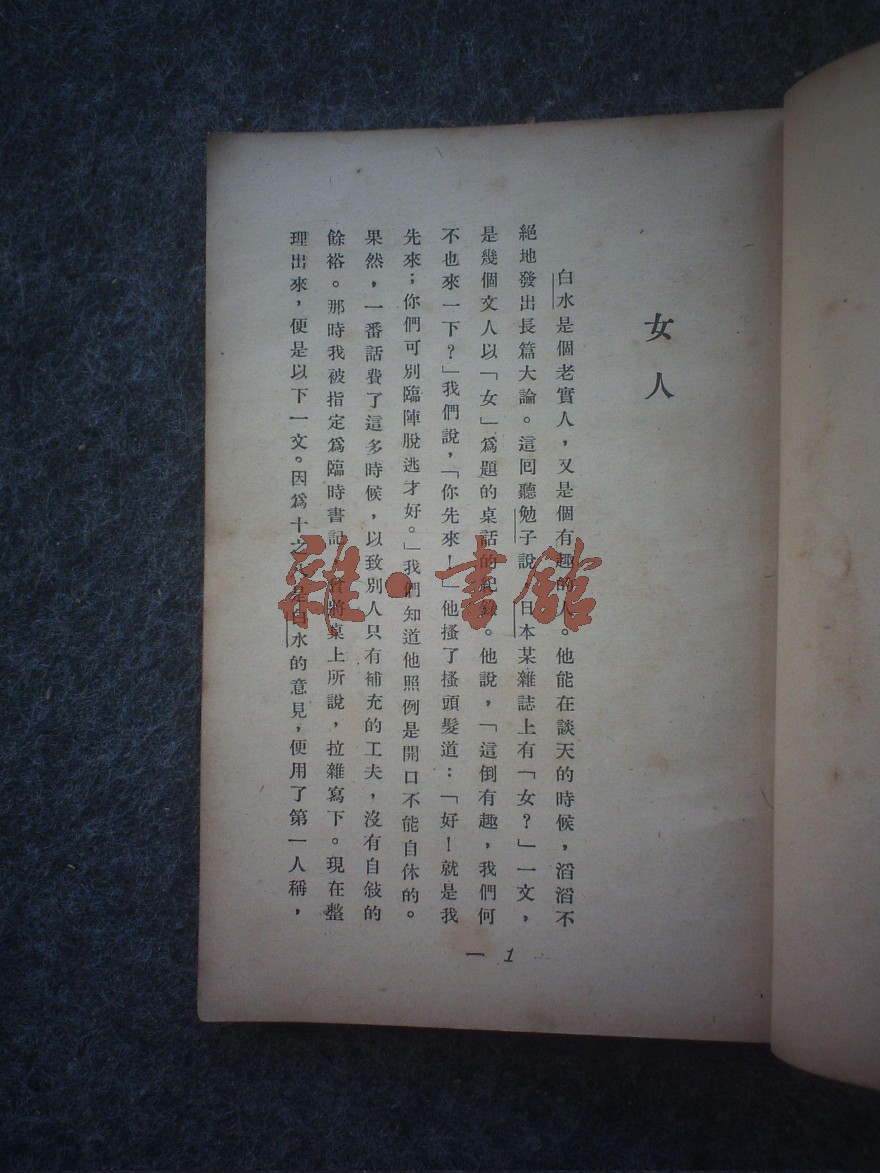 女人
白水是個老實人，又是個有趣的人。他能在談天的時候，滔滔不
絕地發出長篇大論。這回聽勉子說，日本某雜誌上有「女？」一文，
是幾個文人以「女」爲題的桌話的紀錄。他說，「這倒有趣，我們何
不也來一下？」我們說，「你先來！」他搔了搔頭髮道：「好！就是我
先來；你們可別臨陣脫逃才好。」我們知道他照例是開口不能自休的。
果然，一番話費了這多時候，以致別人只有補充的工夫，沒有自敍的
餘裕。那時我被指定爲臨時書記，將桌上所說，拉雜寫下。現在整
理出來，便是以下一文。因爲十之是白水的意見，便用了第一人稱，
一 1
雜·書館